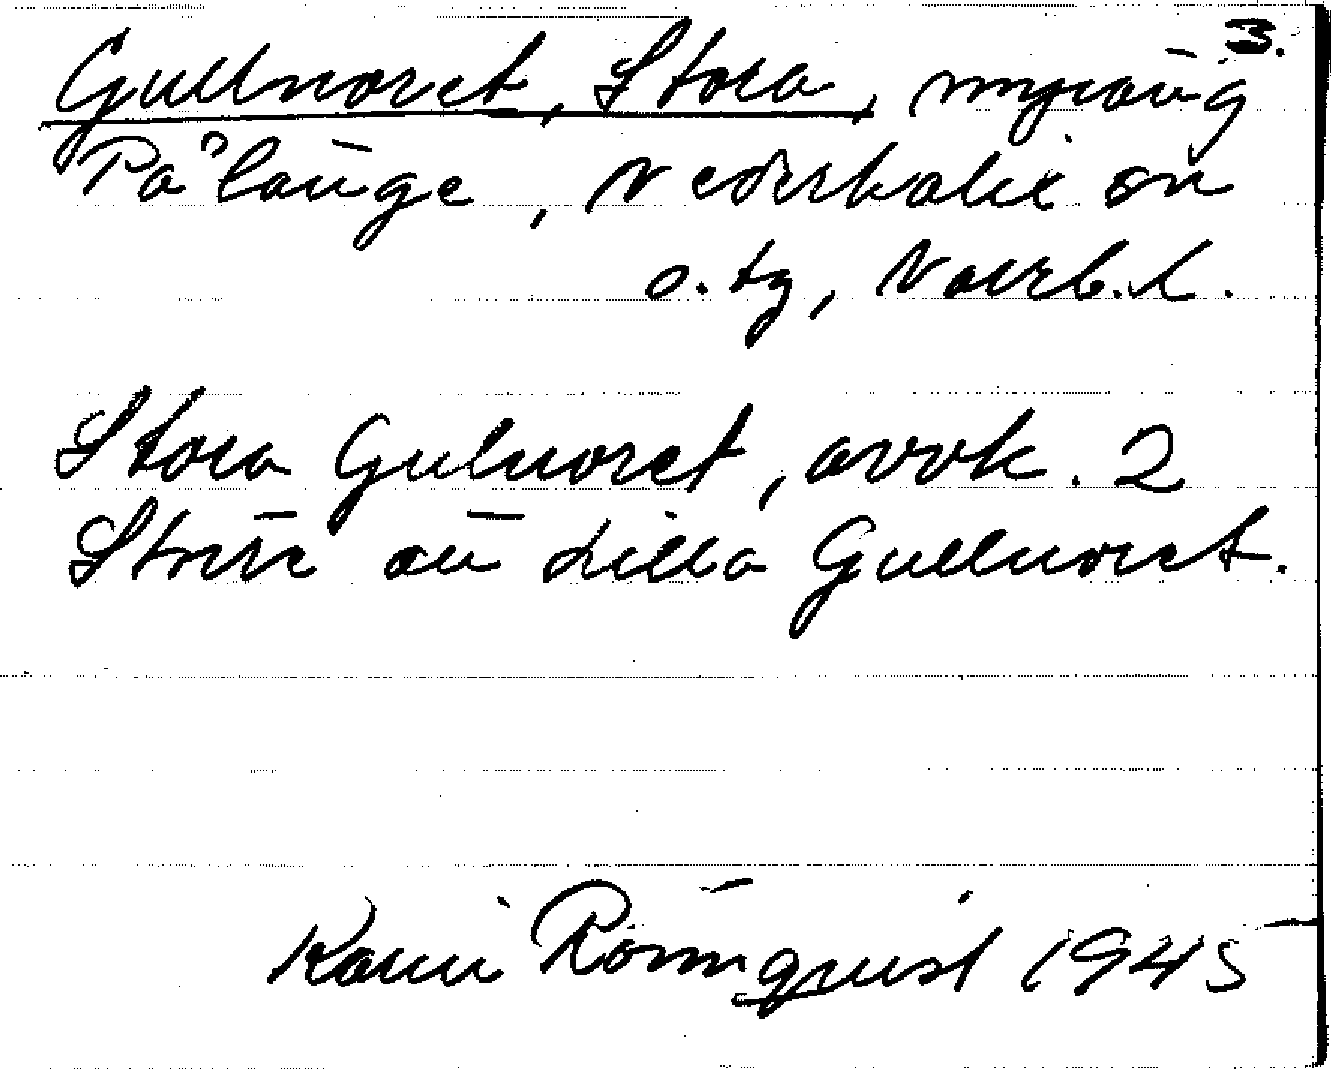 3.
Gullnoret, Stora, myräng
Pålänge, Nederkalix sn
o. tg, Norrb. l.
Stora Gulnoret, avvk. 2
Större än Lilla Gullnoret.
Karin Rönnquist 1945